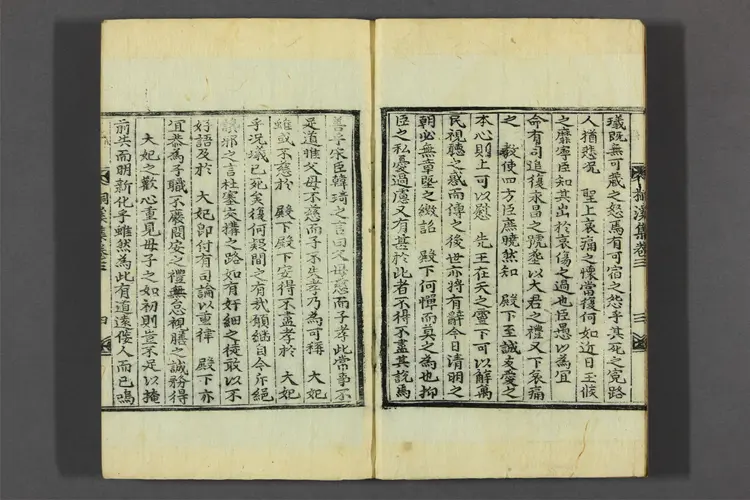 桐溪集卷三 三
㼁既無可藏之怒焉有可宿之怨乎其死之寃路
人猶悲况 聖上哀痛之懷當復何如近日王候
之靡寧臣知其出於哀傷之過也臣愚以為宜
命有司追復永昌之號塟以大君之禮又下哀痛
之 教使四方臣庶曉然知 殿下至誠友愛之
本心則上可以慰 先王在天之靈下可以解萬
民視聽之惑而傳之後世亦將有辭今日清明之
朝必無草野之繳 殿下何憚而莫之為也抑
臣之私憂過慮又有甚於此者不得不盡其說焉
善乎宋臣韓琦之言曰父母慈而子孝此常事不
足道惟父母不慈而子不失孝乃為可稱 大妃
雖或不慈於 殿下殿下安得不盡孝於 大妃
乎况㼁已死矣復何疑間之有哉願繼自今亦絕
讒邪之言杜塞交搆之路如有奸細之徒敢以不
好語及於 大妃即付有司論以重律 殿下亦
宜恭為子職不廢問安之禮無怠視膳之誠務得
大妃之歡心重見母子之如初則豈不足以掩
前失而明新化乎雖然為此有道遠佞人而已鳴
桐溪集卷三 四